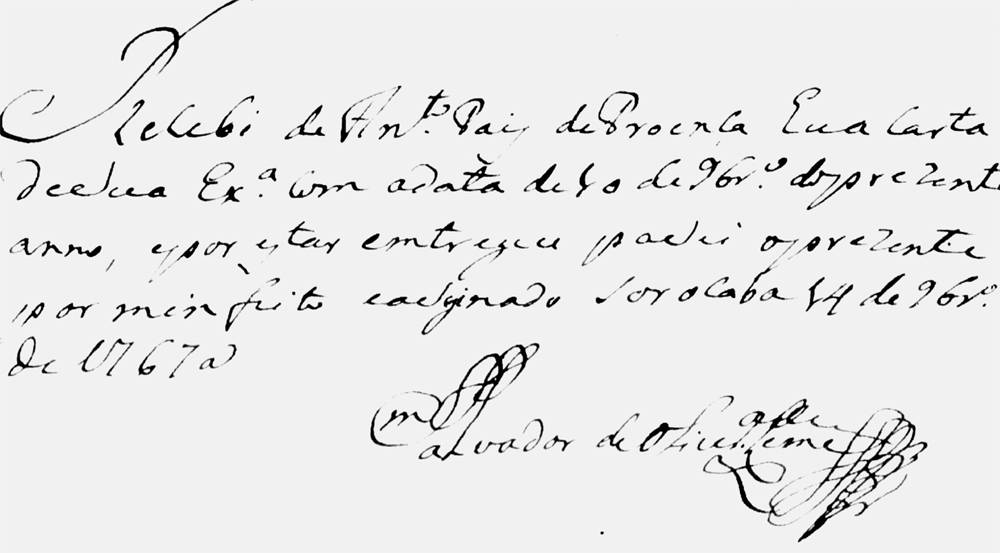 Recebi de Ant.º Pais de Proença hua carta
de sua Ex.ª com a data de 10 de 9br.º do prezente
anno, e por estar emtregue pasei o prezente
por mim feito e asignado Sorocaba 14 de 9br.º
de 1767 a
Salvador de Oliur.ª Leme